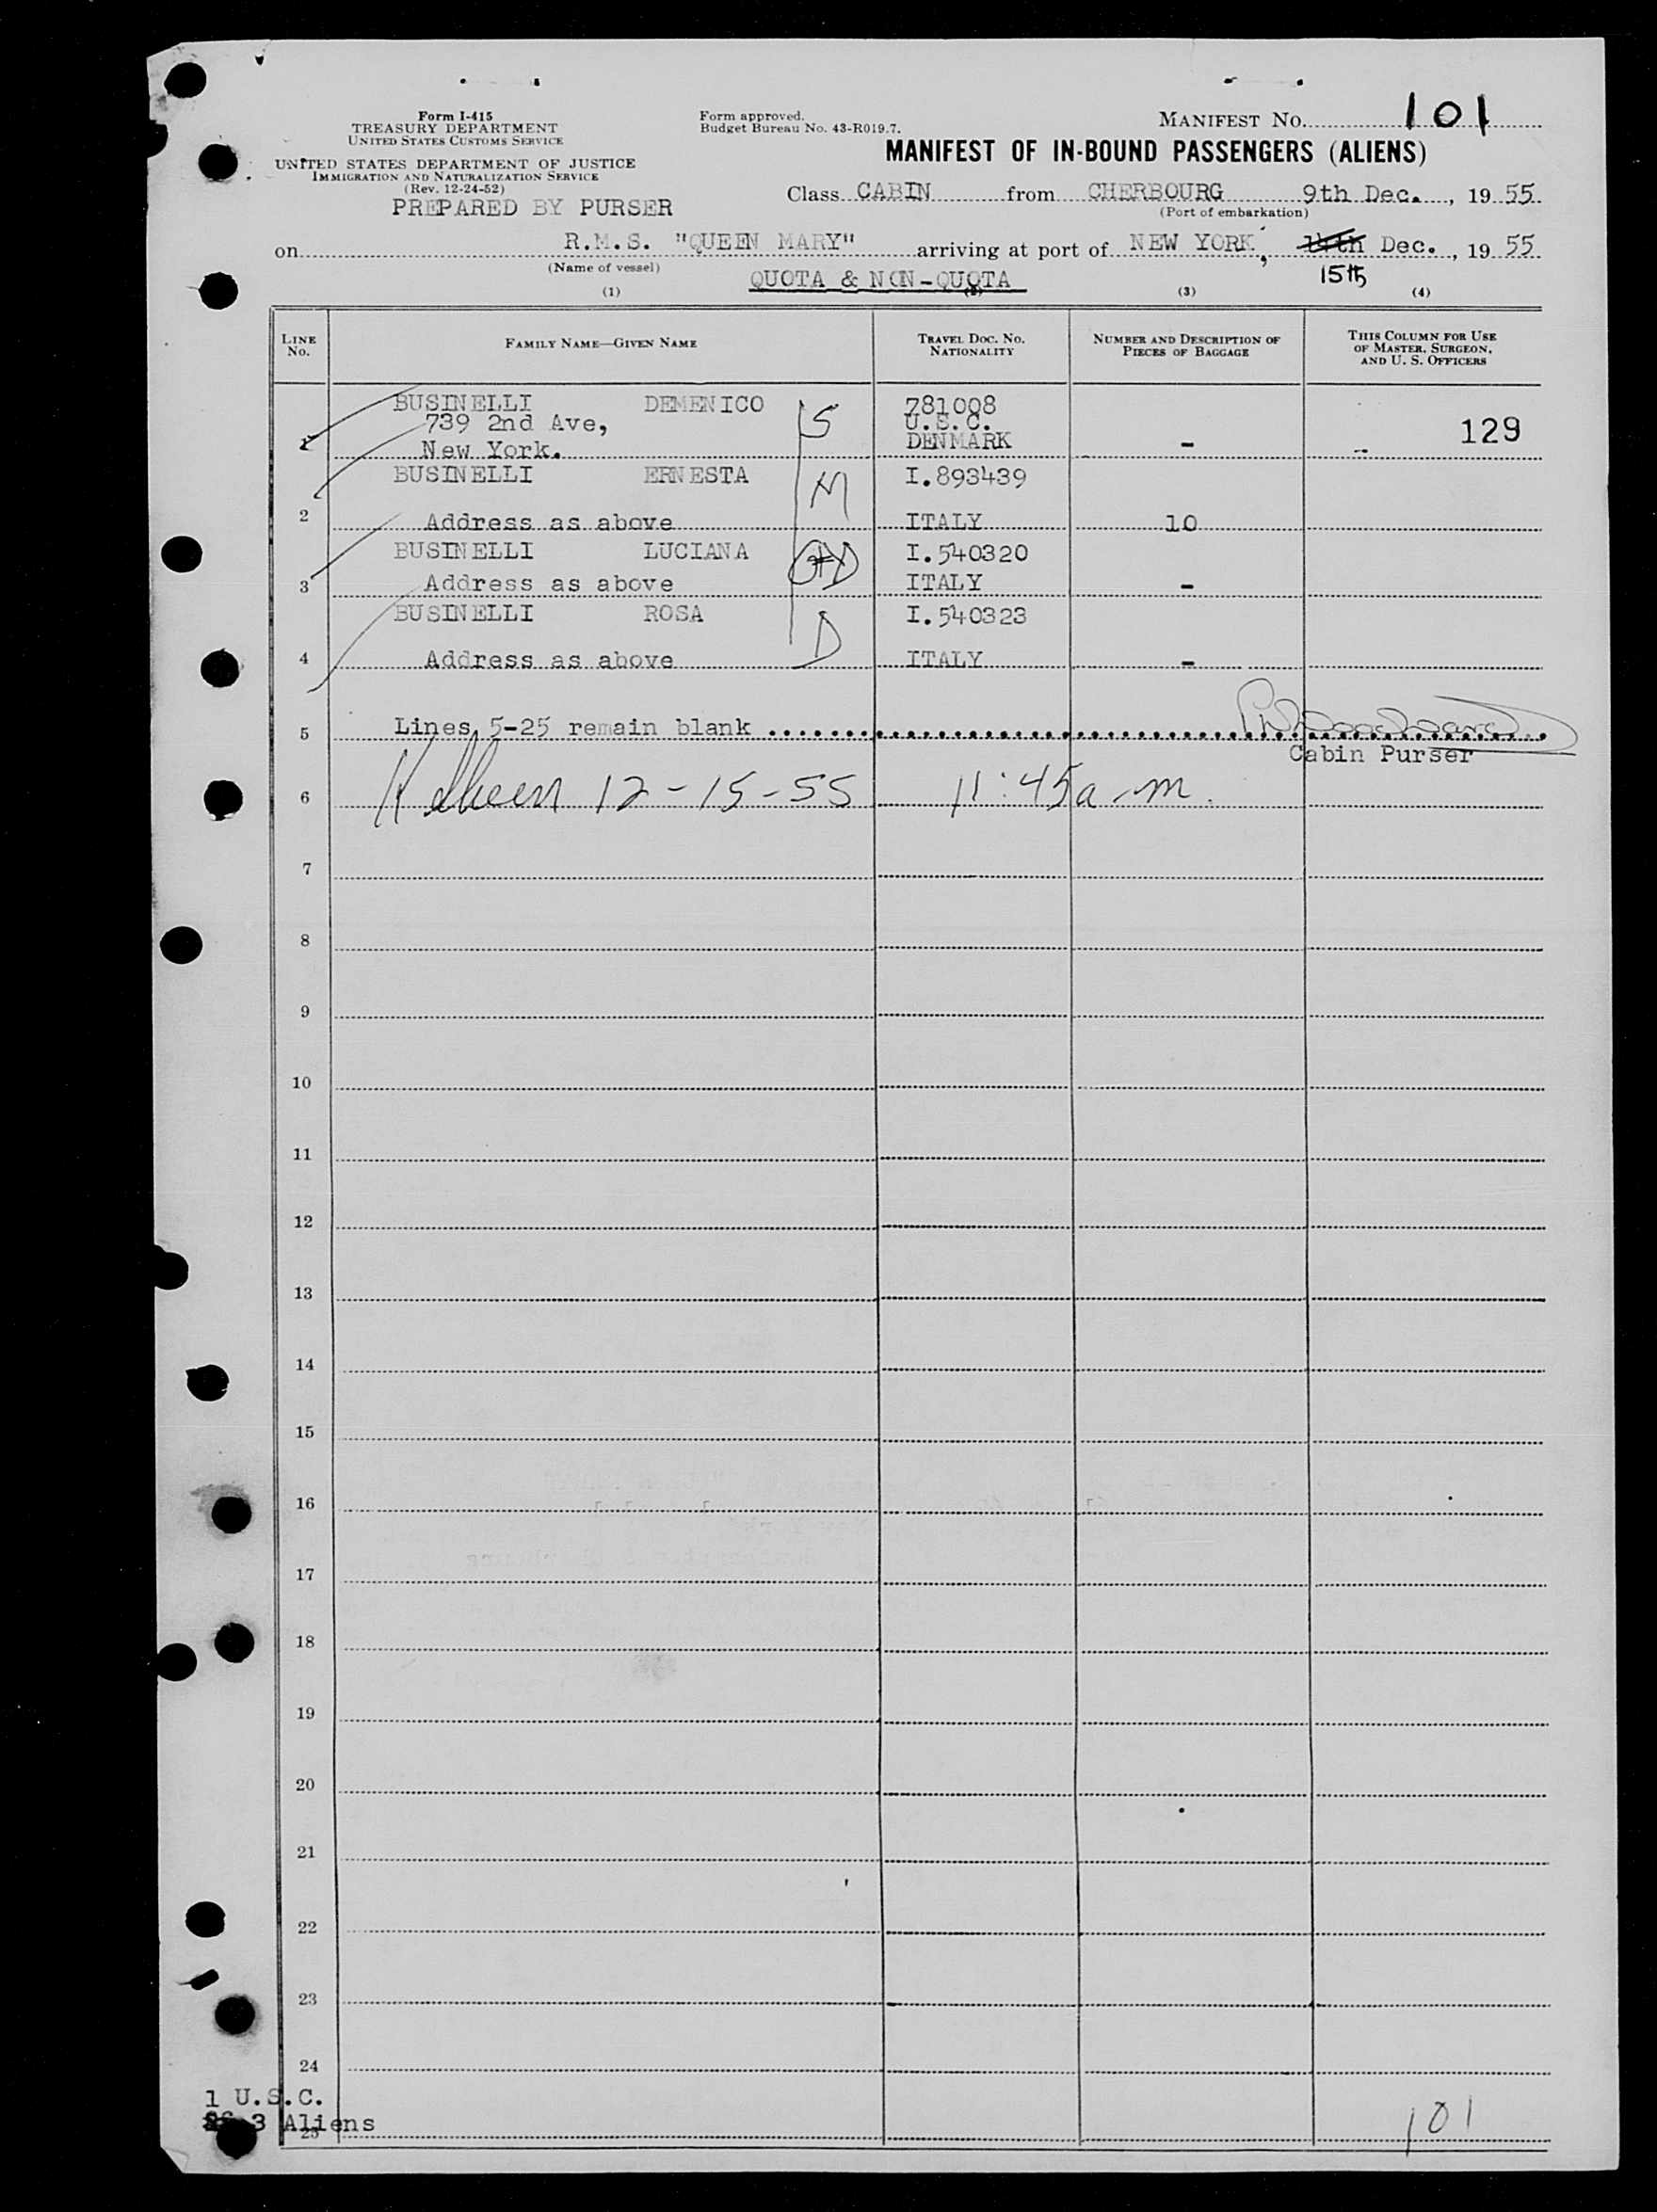 Form I-415
TREASURY DEPARTMENT
UNITED STATES CUSTOMS SERVICE
UNITED STATES DEPARTMENT OF JUSTICE
IMMIGRATION AND NATURALIZATION SERVICE
(Rev. 12-24-52)
PREPARED BY PURSER
Form approved.
Budget Bureau No. 43-R019.7.
MANIFEST NO. 101
MANIFEST OF IN-BOUND PASSENGERS (ALIENS)
Class CABIN from CHERBOURG 9th Dec., 19 55
(Port of embarkation)
on R.M.S. "QUEEN MARY" arriving at port of NEW YORK, 14th Dec., 19 55
(Name of vessel) 15th
QUOTA & NON-QUOTA
(1) (2) (3) (4)
LINE NO. FAMILY NAME—GIVEN NAME TRAVEL DOC. NO. NATIONALITY NUMBER AND DESCRIPTION OF PIECES OF BAGGAGE THIS COLUMN FOR USE OF MASTER, SURGEON, AND U. S. OFFICERS
BUSINELLI DEMENICO S 781008
739 2nd Ave, U.S.C. 129
1 New York. DENMARK -
BUSINELLI ERNESTA M I.893439
2 Address as above ITALY 10
BUSINELLI LUCIANA D I.540320
3 Address as above ITALY -
BUSINELLI ROSA D I.540323
4 Address as above ITALY -
5 Lines 5-25 remain blank
Cabin Purser
6 12-15-55 11:45 a.m.
7
8
9
10
11
12
13
14
15
16
17
18
19
20
21
22
23
24
1 U.S.C.
3 Aliens
25
101